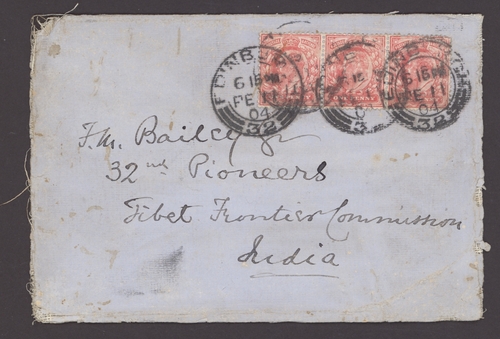 EDINBURGH
6 15 PM
FE 11
04
32
EDINB
6 15 PM
FE 11
04
32
F. M. Bailey Esq
32nd Pioneers
Tibet Frontier Commission
India